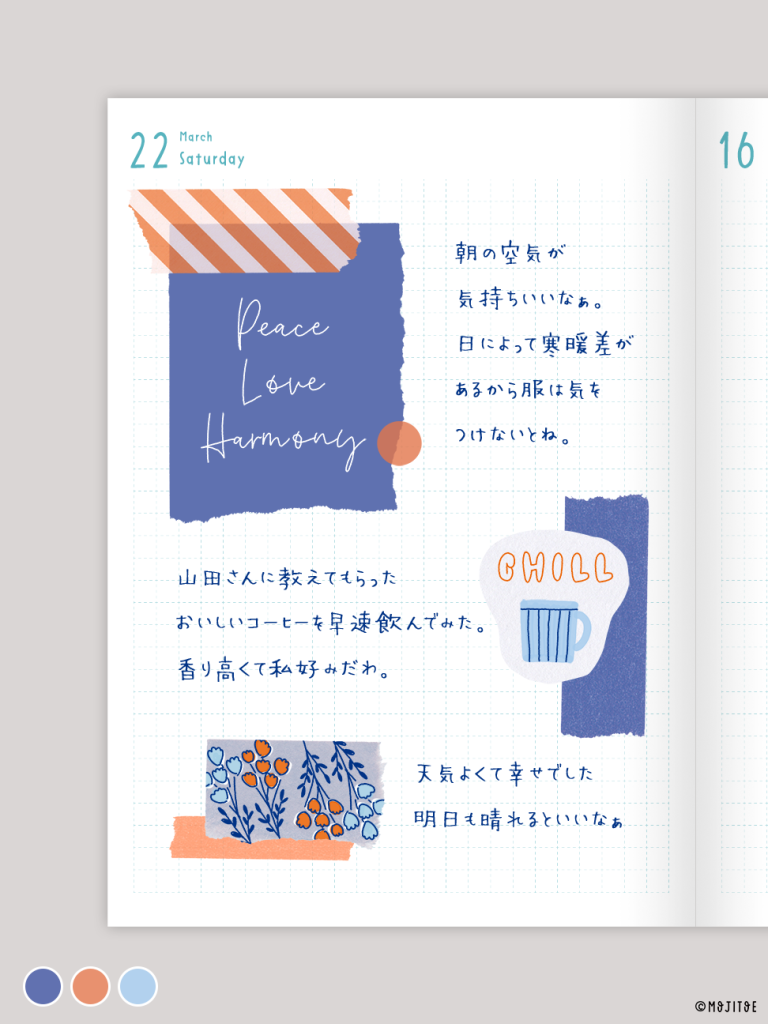 22
March
Saturday
16
Peace
Love
Harmony
朝の空気が
気持ちいいなぁ。
日によって寒暖差が
あるから服は気を
つけないとね。
CHILL
山田さんに教えてもらった
おいしいコーヒーを早速飲んでみた。
香り高くて私好みだわ。
天気よくて幸せでした
明日も晴れるといいなぁ
©MAJIT&E